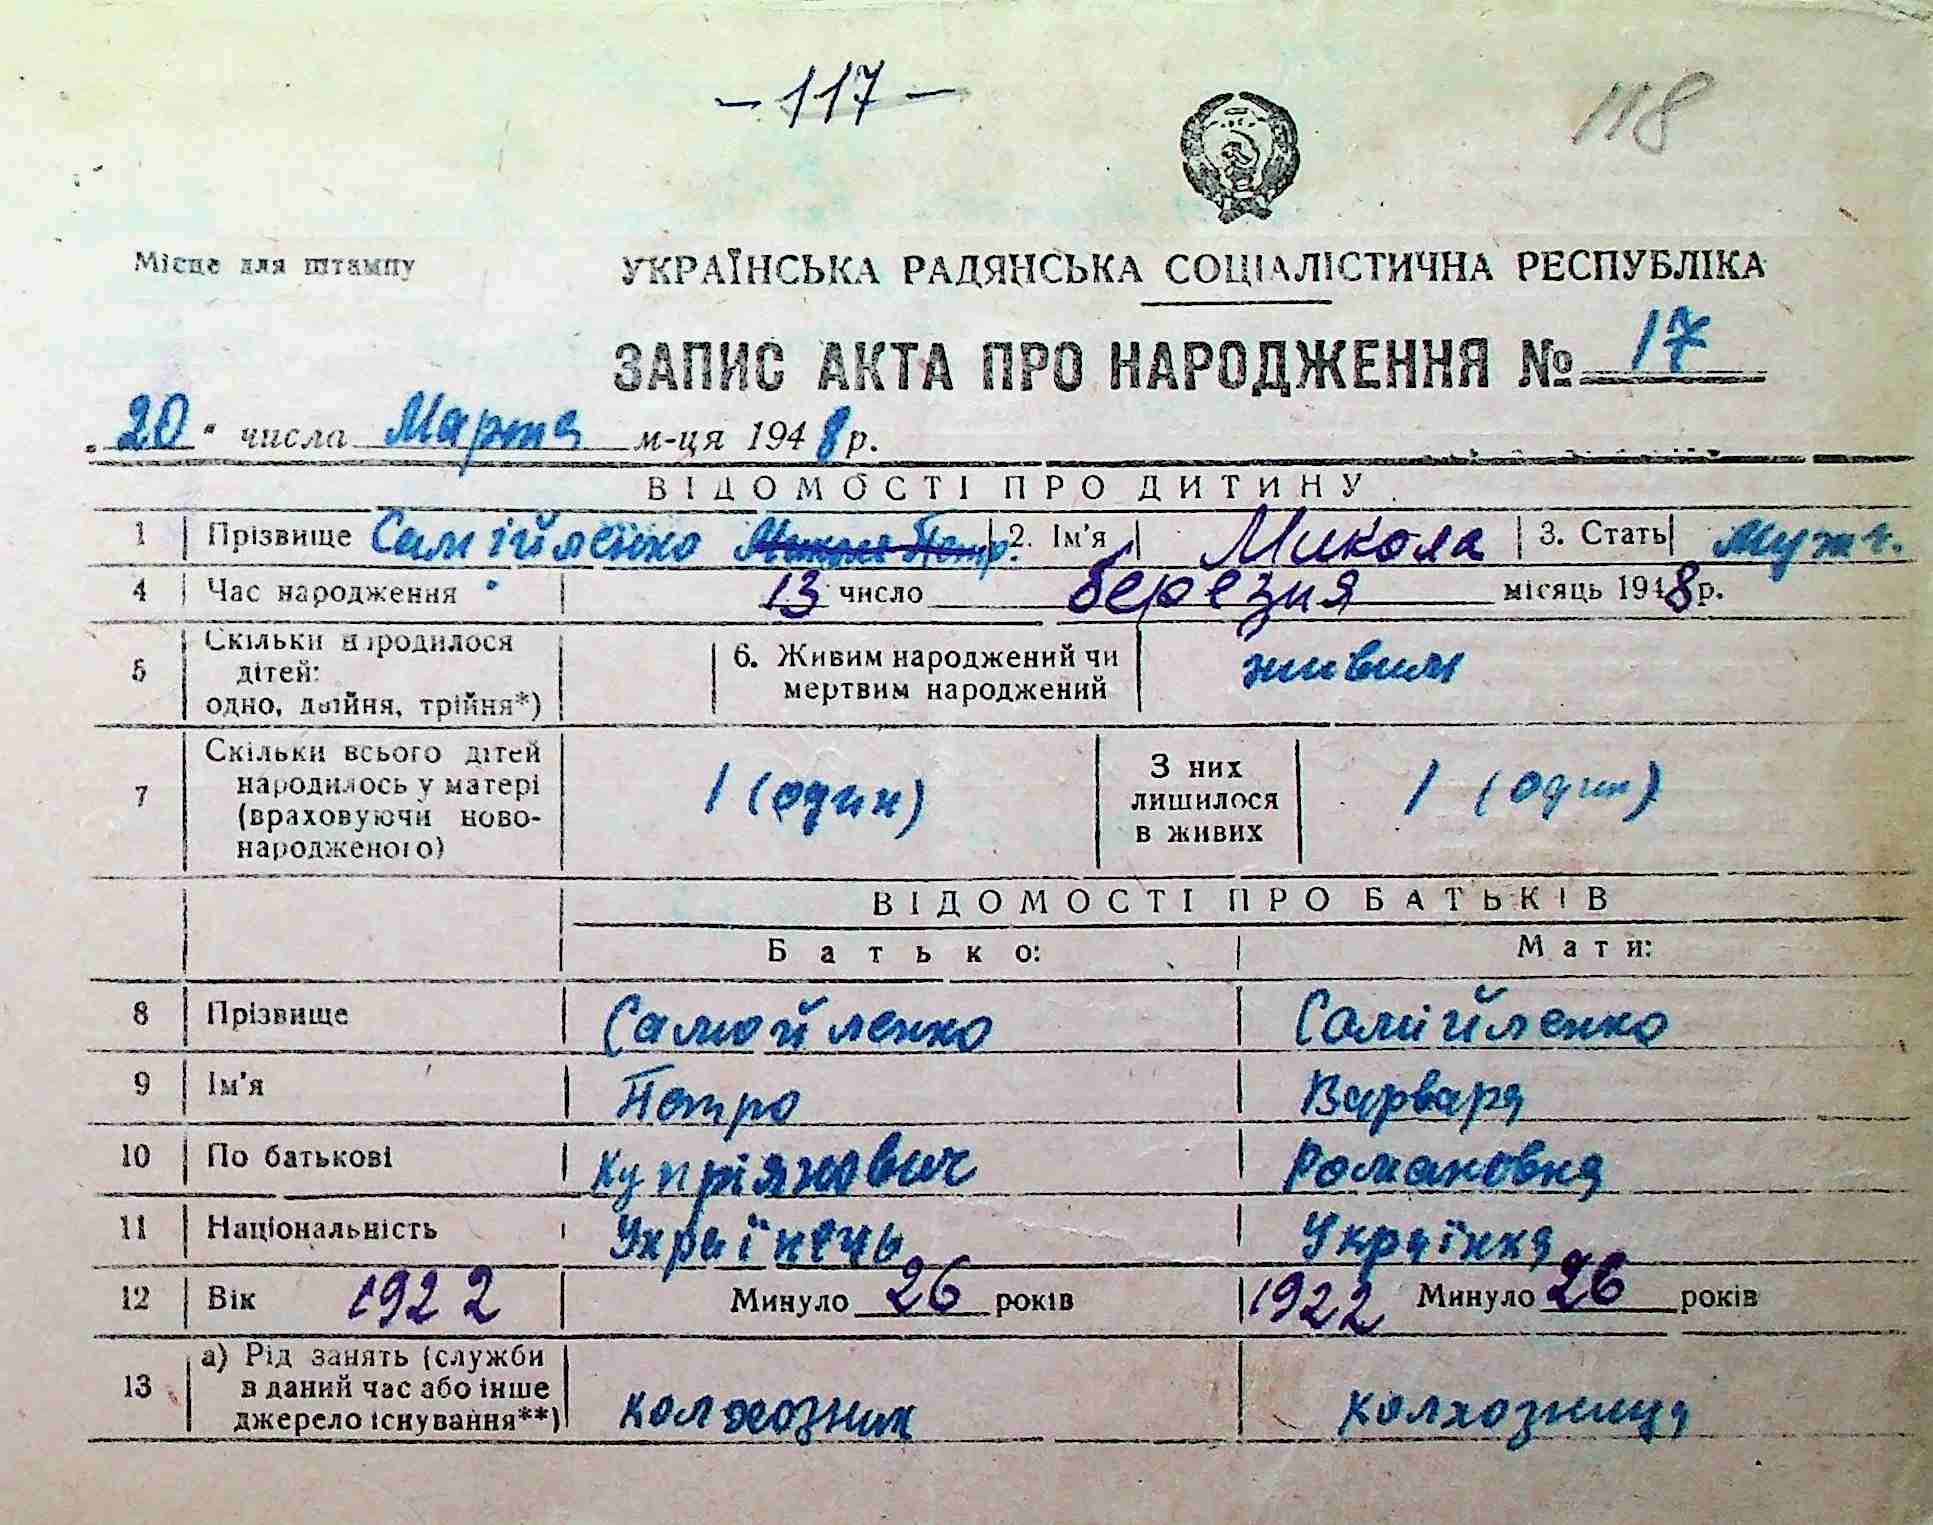 - 117 -
118
Місце для штампу
УКРАЇНСЬКА РАДЯНСЬКА СОЦІАЛІСТИЧНА РЕСПУБЛІКА
ЗАПИС АКТА ПРО НАРОДЖЕННЯ № 17
„20“ числа Марта м-ця 1948 р.
ВІДОМОСТІ ПРО ДИТИНУ
1 Прізвище Самійленко Микола Петр. 2. Ім'я Микола 3. Стать Муж ч.
4 Час народження 13 число березня місяць 1948 р.
5 Скільки народилося
дітей:
одно, двійня, трійня*)
6. Живим народжений чи
мертвим народжений
живим
7 Скільки всього дітей
народилось у матері
(враховуючи ново-
народженого)
1 (один)
З них
лишилося
в живих
1 (один)
ВІДОМОСТІ ПРО БАТЬКІВ
Батько: Мати:
8 Прізвище Самойленко Самійленко
9 Ім'я Петро Варвара
10 По батькові Купріянович Романовна
11 Національність Українець Українка
12 Вік 1922 Минуло 26 років 1922 Минуло 26 років
13 а) Рід занять (служби
в даний час або інше
джерело існування**)
колхозник колхозница